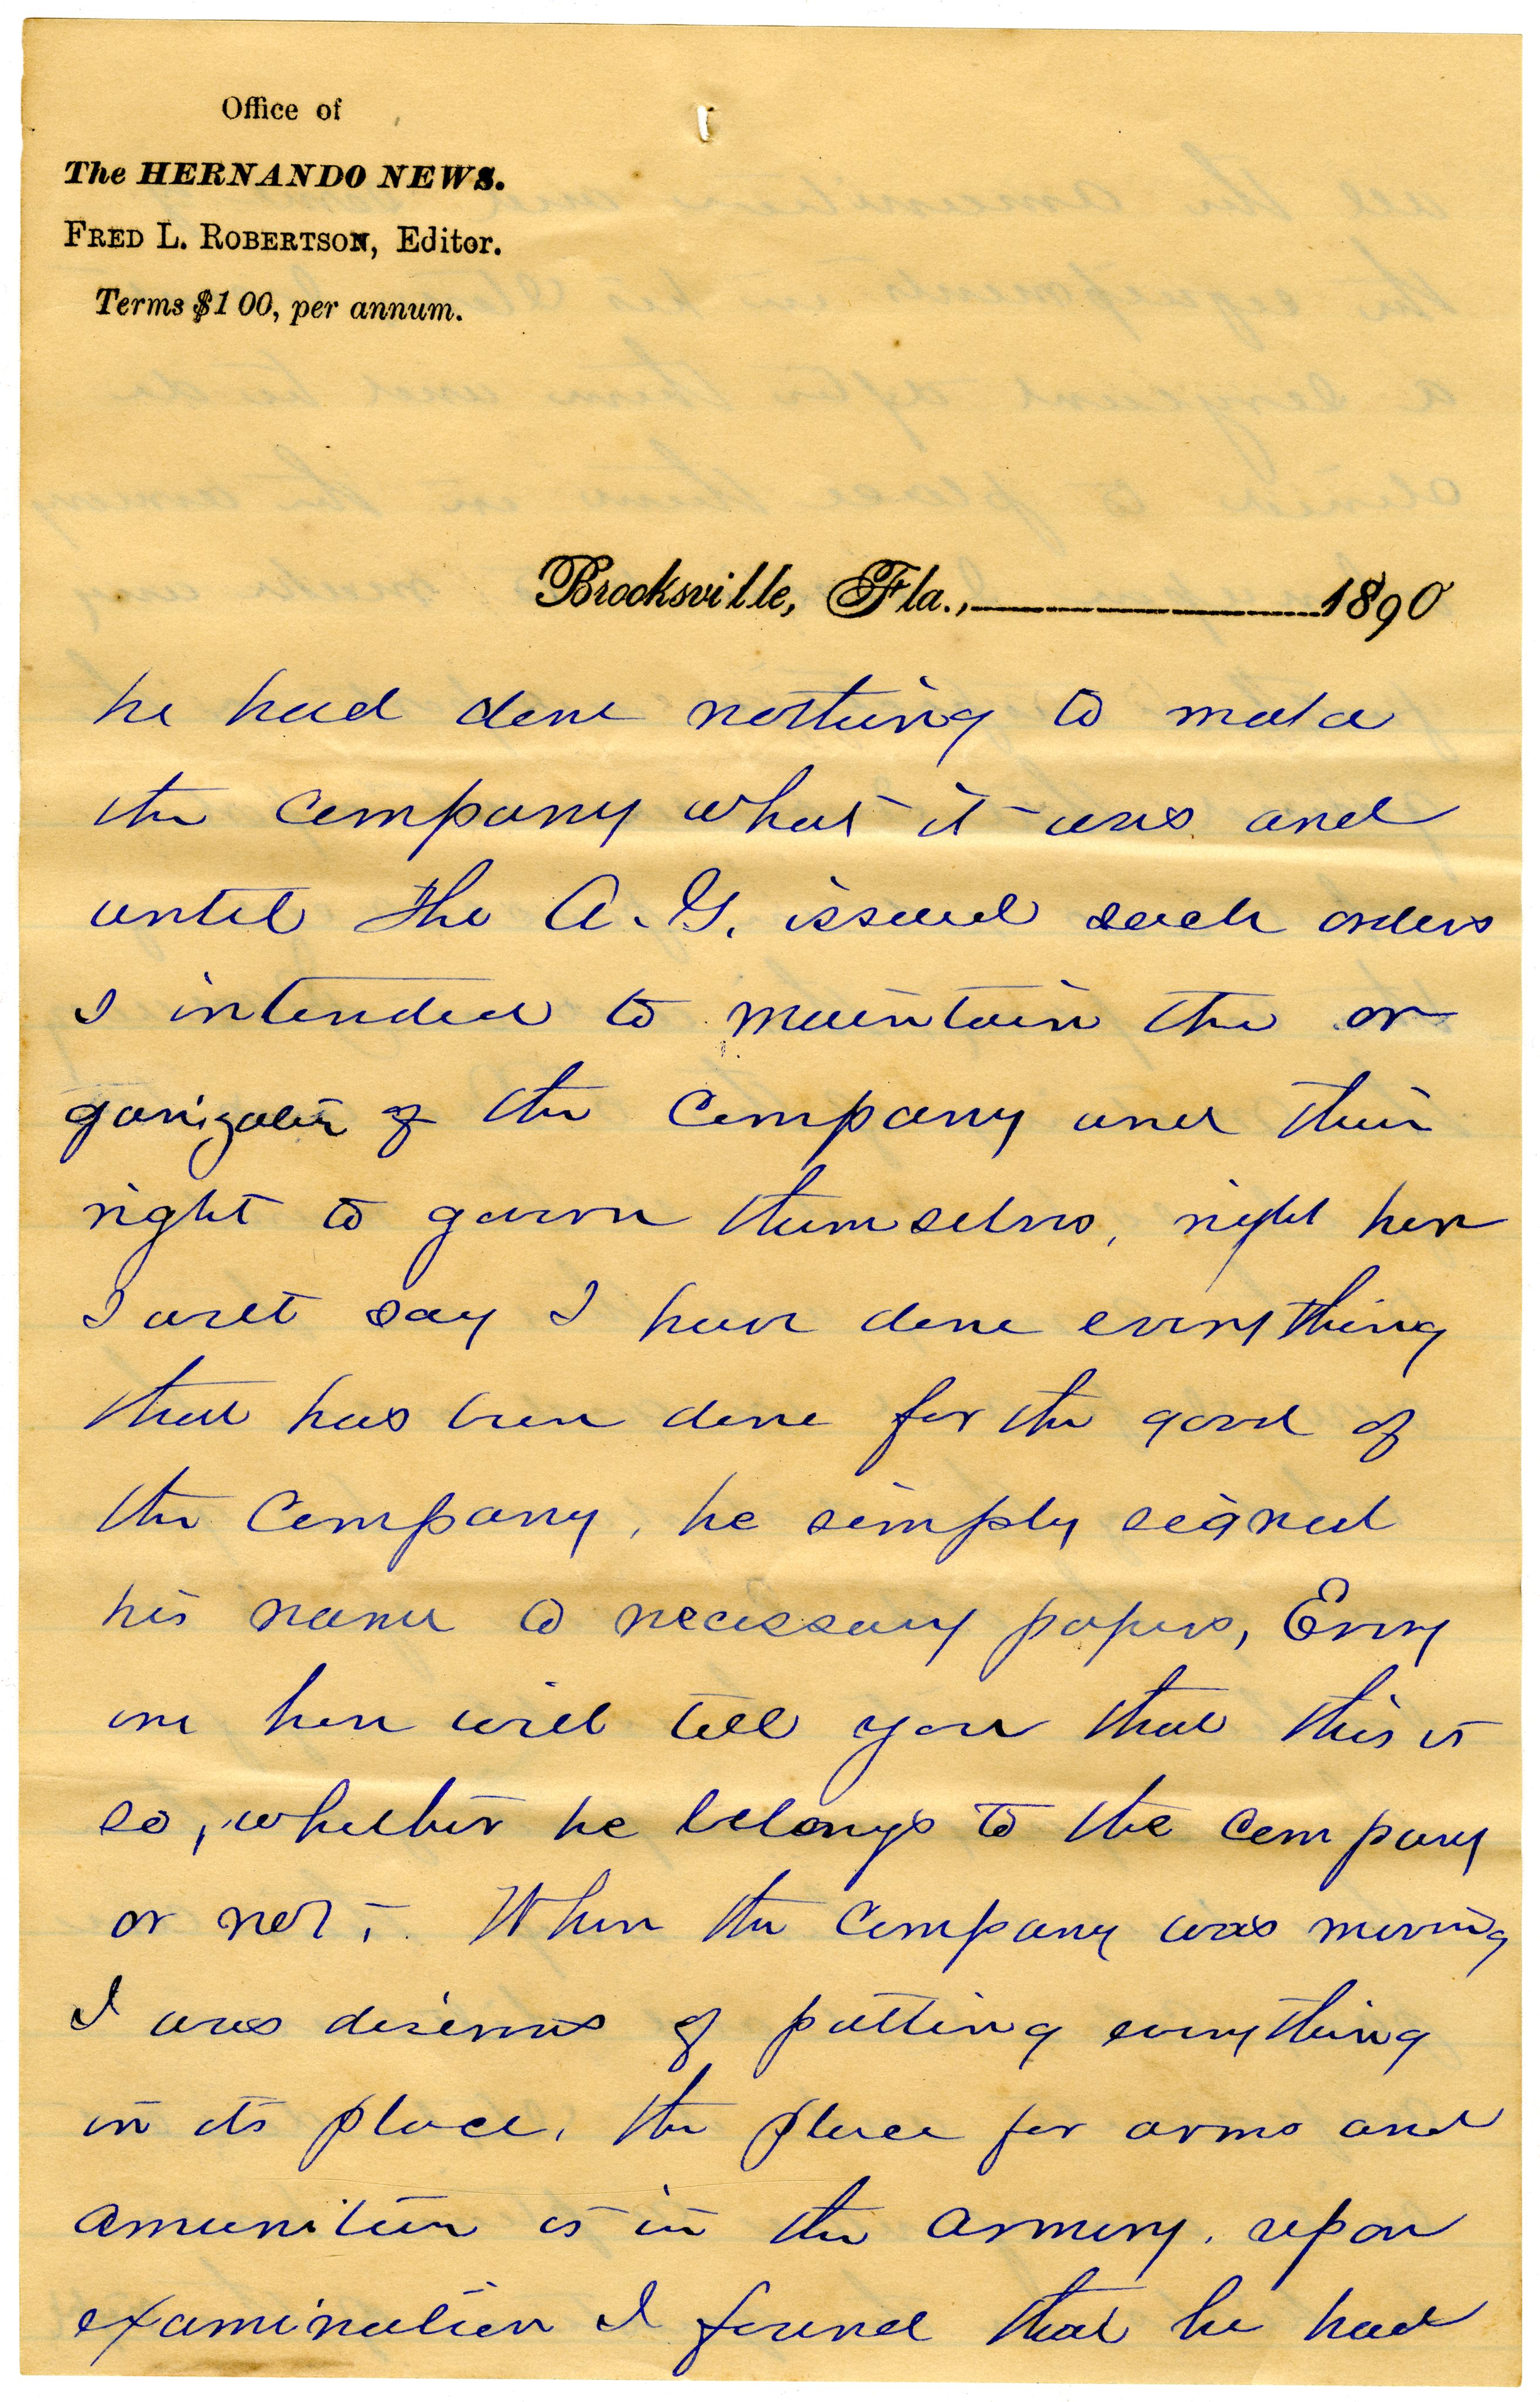 Office of
The HERNANDO NEWS.
FRED L. ROBERTSON, Editor.
Terms $1 00, per annum.
Brooksville, Fla., 1890
he had done nothing to make
the company what it was and
until the A. G. issued such orders
I intended to maintain the or
ganization of the company and their
right to govern themselves, right here
I will say I have done everything
that has been done for the good of
the company, he simply signed
his name to necessary papers, Every
one here will tell you that this is
so, whether he belongs to the company
or not. When the company was moving
I was desirous of putting everything
in its place, the place for arms and
amunition is in the armory. upon
examination I found that he had